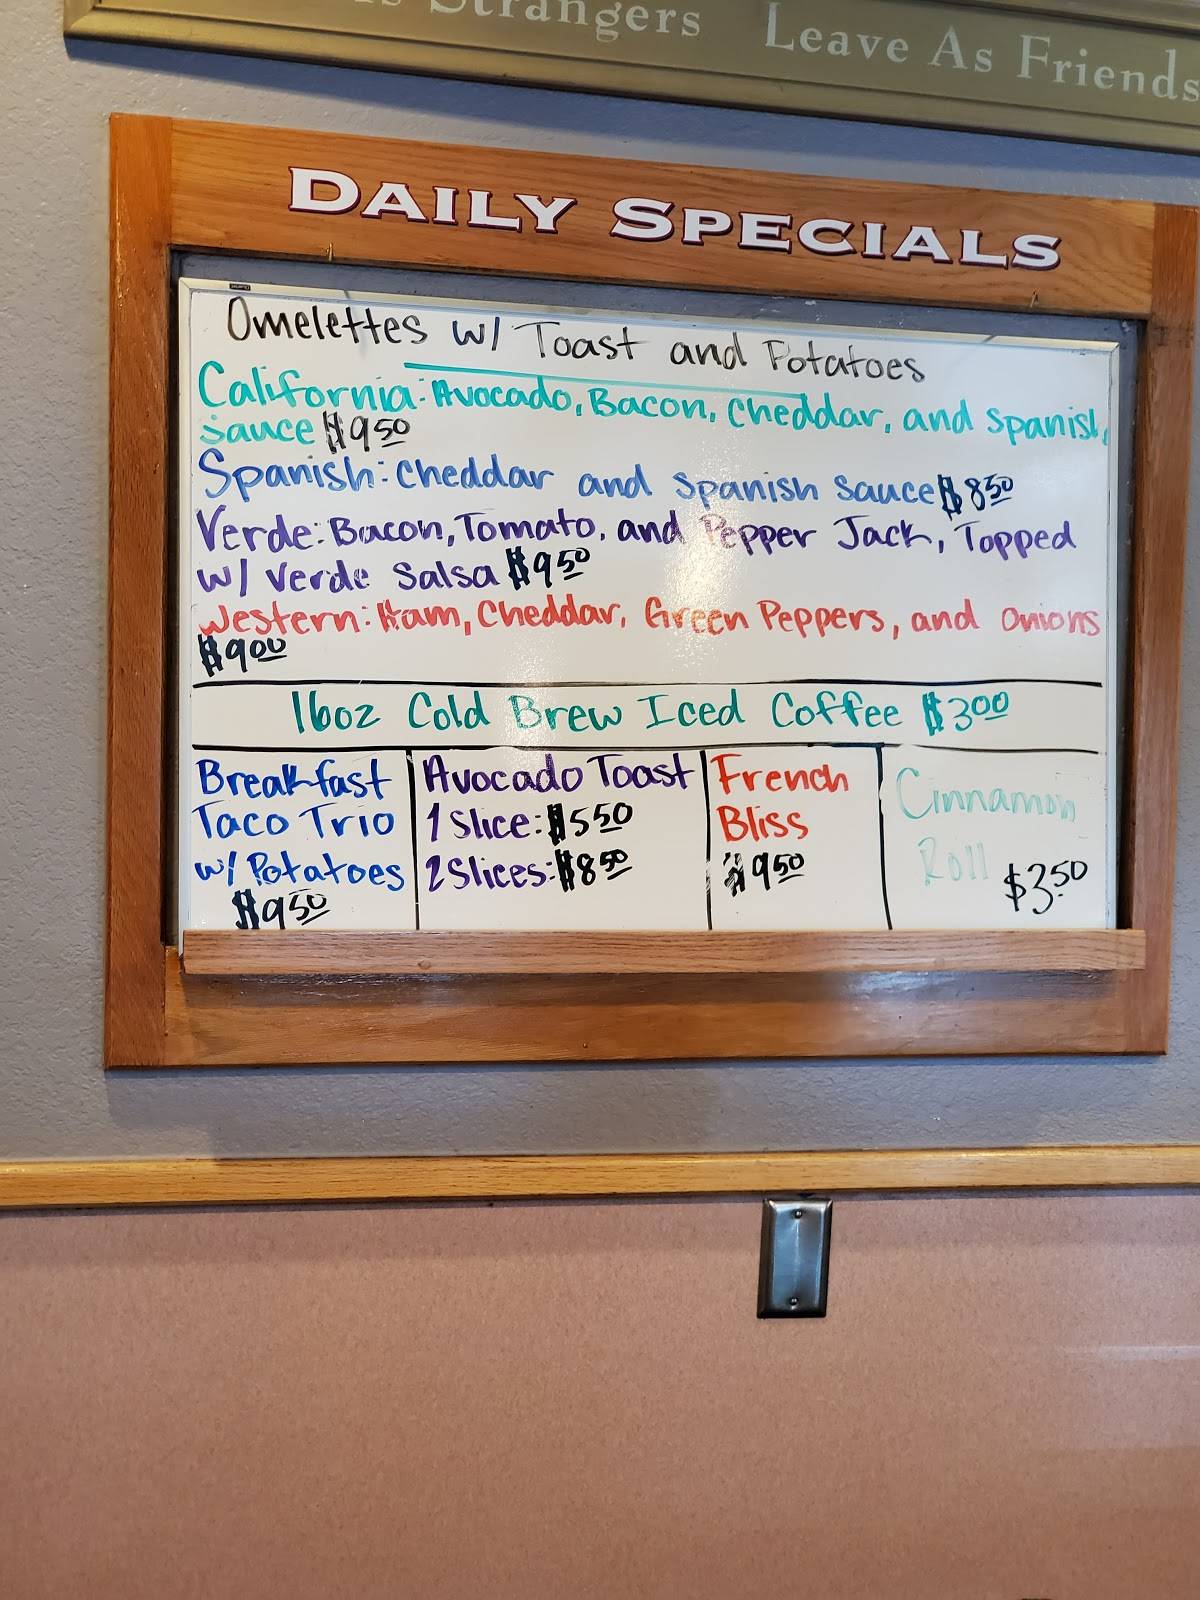 Strangers Leave As Friends
DAILY SPECIALS
Omelettes w/ Toast and Potatoes
California: Avocado, Bacon, Cheddar, and Spanish
Sauce $9.50
Spanish: Cheddar and Spanish Sauce $8.50
Verde: Bacon, Tomato, and Pepper Jack, Topped
w/ Verde Salsa $9.50
Western: Ham, Cheddar, Green Peppers, and Onions
$9.00
16oz Cold Brew Iced Coffee $3.00
Breakfast
Taco Trio
w/ Potatoes
$9.50
Avocado Toast
1 Slice: $5.50
2 Slices: $8.50
French
Bliss
$9.50
Cinnamon
Roll
$3.50